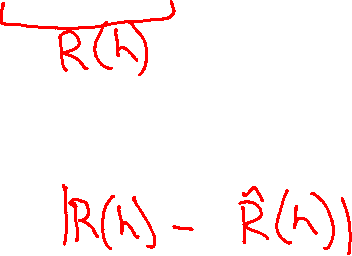 R(h)
|R(h) - R̂(h)|